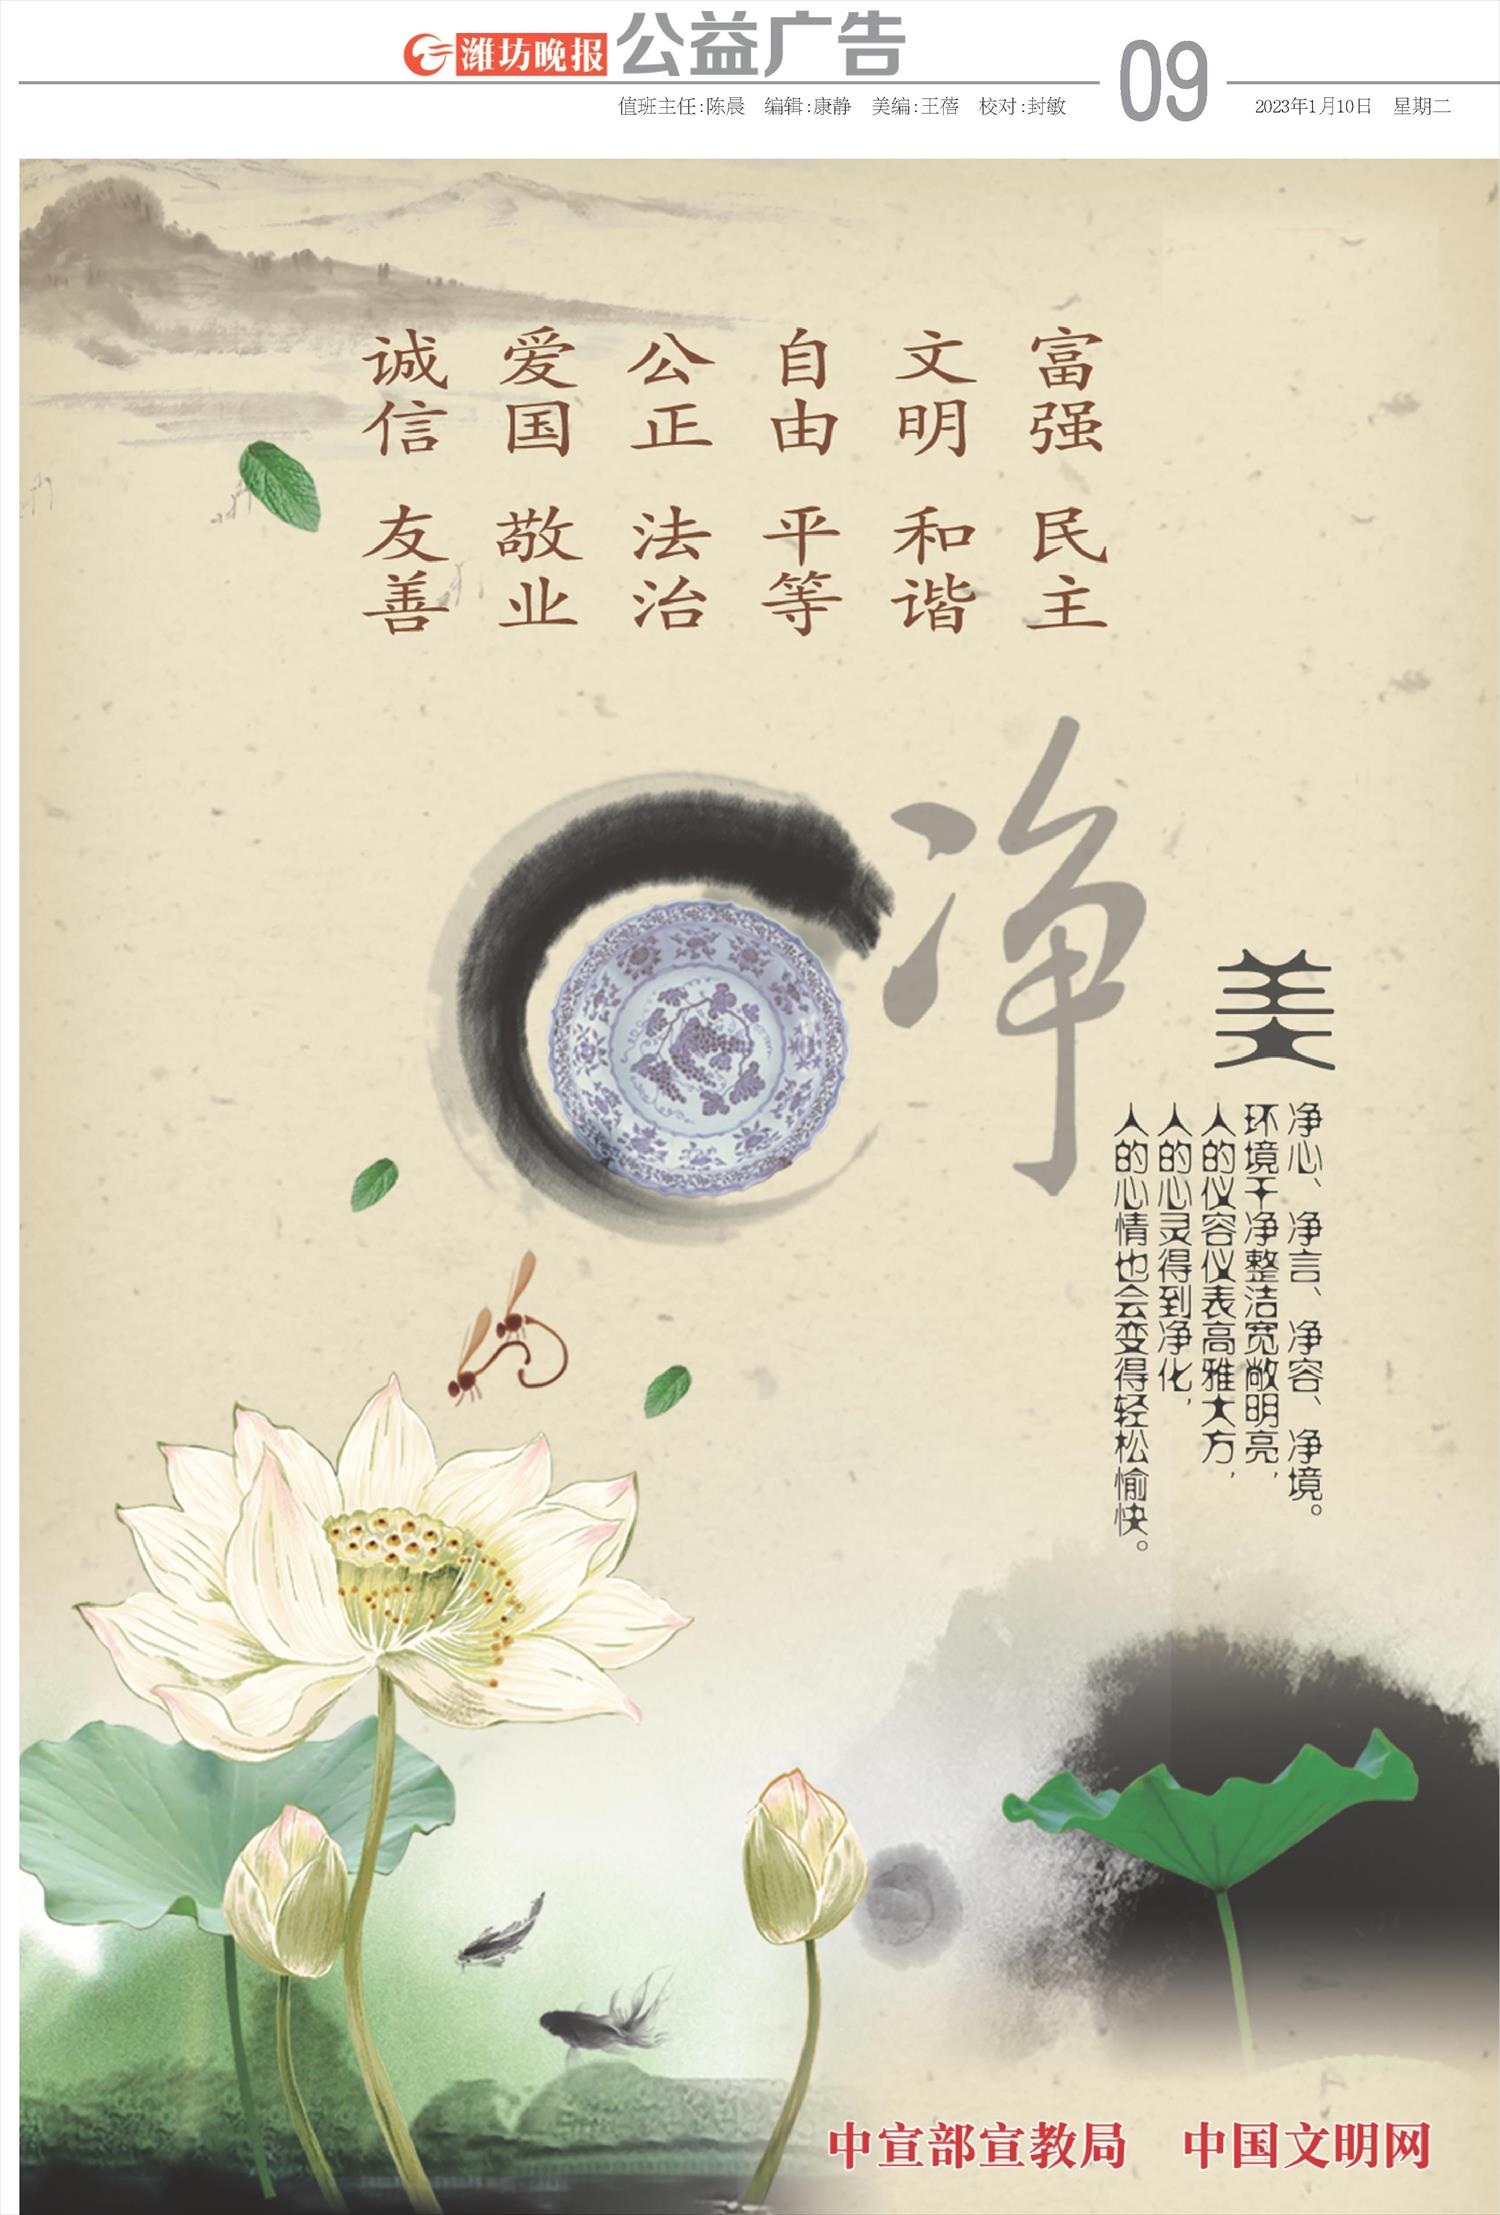 潍坊晚报 公益广告
值班主任:陈晨 编辑:康静 美编:王蓓 校对:封敏
09
2023年1月10日 星期二
富强 民主
文明 和谐
自由 平等
公正 法治
爱国 敬业
诚信 友善
净
美
净心、净言、净容、净境。
环境干净整洁宽敞明亮，
人的仪容仪表高雅大方，
人的心灵得到净化，
人的心情也会变得轻松愉快。
中宣部宣教局 中国文明网